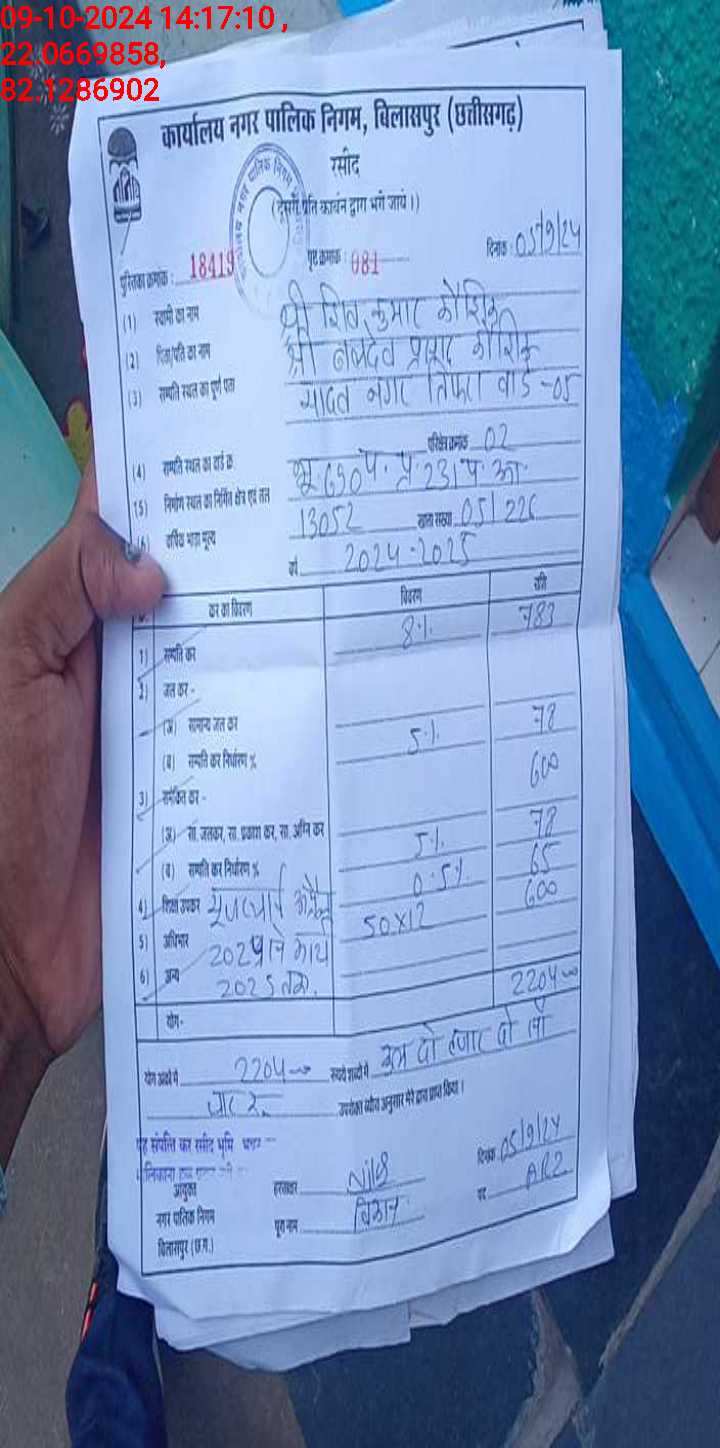 09-10-2024 14:17:10 ,
22.0669858,
82.1286902
कार्यालय नगर पालिक निगम, बिलासपुर (छत्तीसगढ़)
रसीद
(दूसरी प्रति कार्बन द्वारा भरी जायें।)
पुस्तिका क्रमांक : 18419 पृष्ठ क्रमांक : 081 दिनांक : 05/9/24
(1) स्वामी का नाम श्री शिव कुमार कौशिक
(2) पिता/पति का नाम श्री बलदेव प्रसाद कौशिक
(3) सम्पति स्थल का पूर्ण पता यादव नगर तिफरा वार्ड -05
(4) सम्पति स्थल का वार्ड क्र. परिक्षेत्र क्रमांक 02
(5) निर्माण स्थल का निर्मित क्षेत्र एवं तल भू.690 प. 231 प.
(6) वार्षिक भाड़ा मूल्य 13052 खाता संख्या 05/226
वर्ष 2024-2025
कर का विवरण विवरण राशि
1) सम्पति कर 8% 783
2) जल कर -
(अ) सामान्य जल कर
(ब) सम्पति कर निर्धारण % 5% 78
3) समेकित कर - 600
(अ) सा. जलकर, सा. प्रकाश कर, सा. अग्नि कर
(ब) सम्पति कर निर्धारण % 5% 78
4) शिक्षा उपकर 0.5% 65
5) अधिभार 50x12 600
6) अन्य 2025 तक.
योग- 2204
योग अंकों में 2204 रुपये शब्दों में दो हजार दो सौ
चार रू. उपरोक्त ब्यौरा अनुसार मेरे द्वारा प्राप्त किया।
यह संपत्ति कर रसीद भूमि
आयुक्त हस्ताक्षर दिनांक 05/9/24
नगर पालिक निगम पूरा नाम पद AR2
बिलासपुर (छ.ग.)